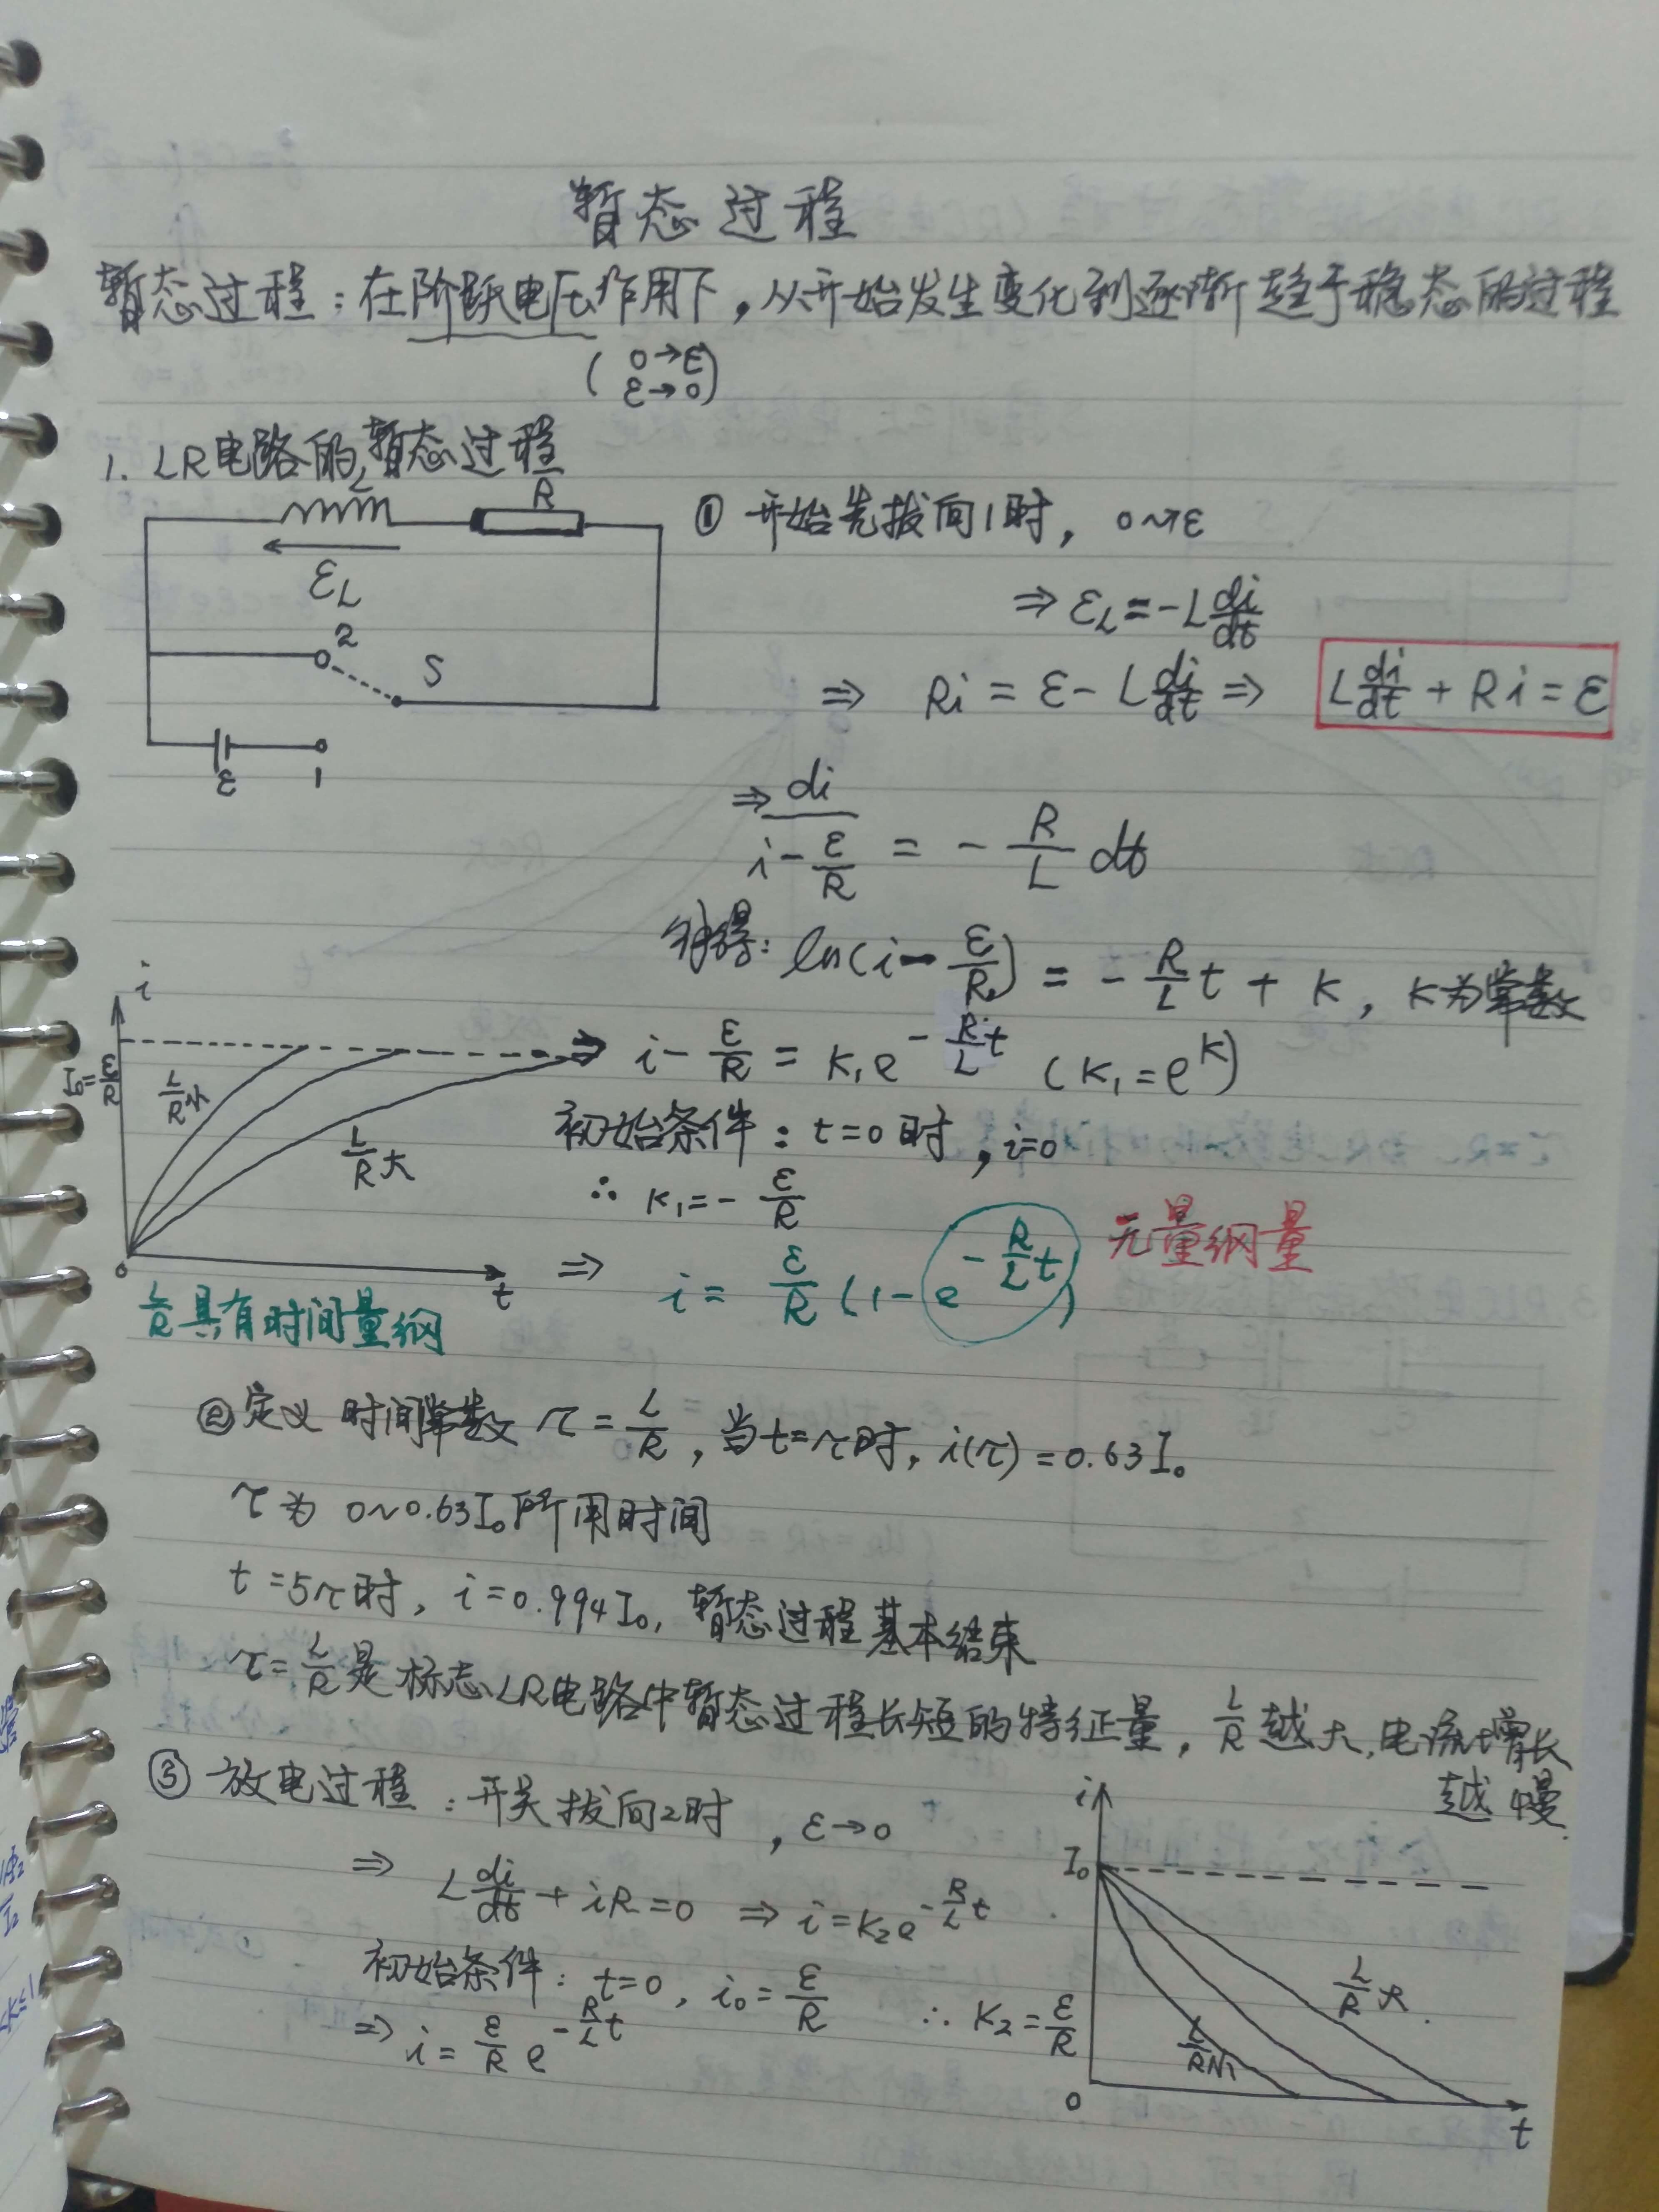 暂态过程
暂态过程：在阶跃电压作用下，从开始发生变化到逐渐趋于稳态的过程
(0→ε
ε→0)
1. LR电路的暂态过程
L
R
ε_L
2
S
ε
1
① 开始先拔向1时，0→ε
⇒ ε_L = -L di/dt
⇒ Ri = ε - L di/dt ⇒ L di/dt + Ri = ε
⇒ di/(i - ε/R) = - R/L dt
解得: ln(i - ε/R) = - R/L t + K, K为常数
⇒ i - ε/R = K₁e^(-R/L t) (K₁ = e^K)
初始条件：t=0时，i=0
∴ K₁ = - ε/R
⇒ i = ε/R (1 - e^(-R/L t)) 无量纲量
i
I₀ = ε/R
L/R 小
L/R 大
0
t
L/R 具有时间量纲
② 定义 时间常数 τ = L/R, 当t=τ时, i(τ) = 0.63I₀
τ为 0~0.63I₀所用时间
t=5τ时, i=0.994I₀, 暂态过程基本结束
τ = L/R 是标志LR电路中暂态过程长短的特征量, L/R 越大, 电流增长
越慢.
③ 放电过程：开关拔向2时，ε→0
⇒ L di/dt + iR = 0 ⇒ i = K₂e^(-R/L t)
初始条件: t=0, i₀ = ε/R ∴ K₂ = ε/R
⇒ i = ε/R e^(-R/L t)
i
I₀
L/R 大
L/R 小
0
t